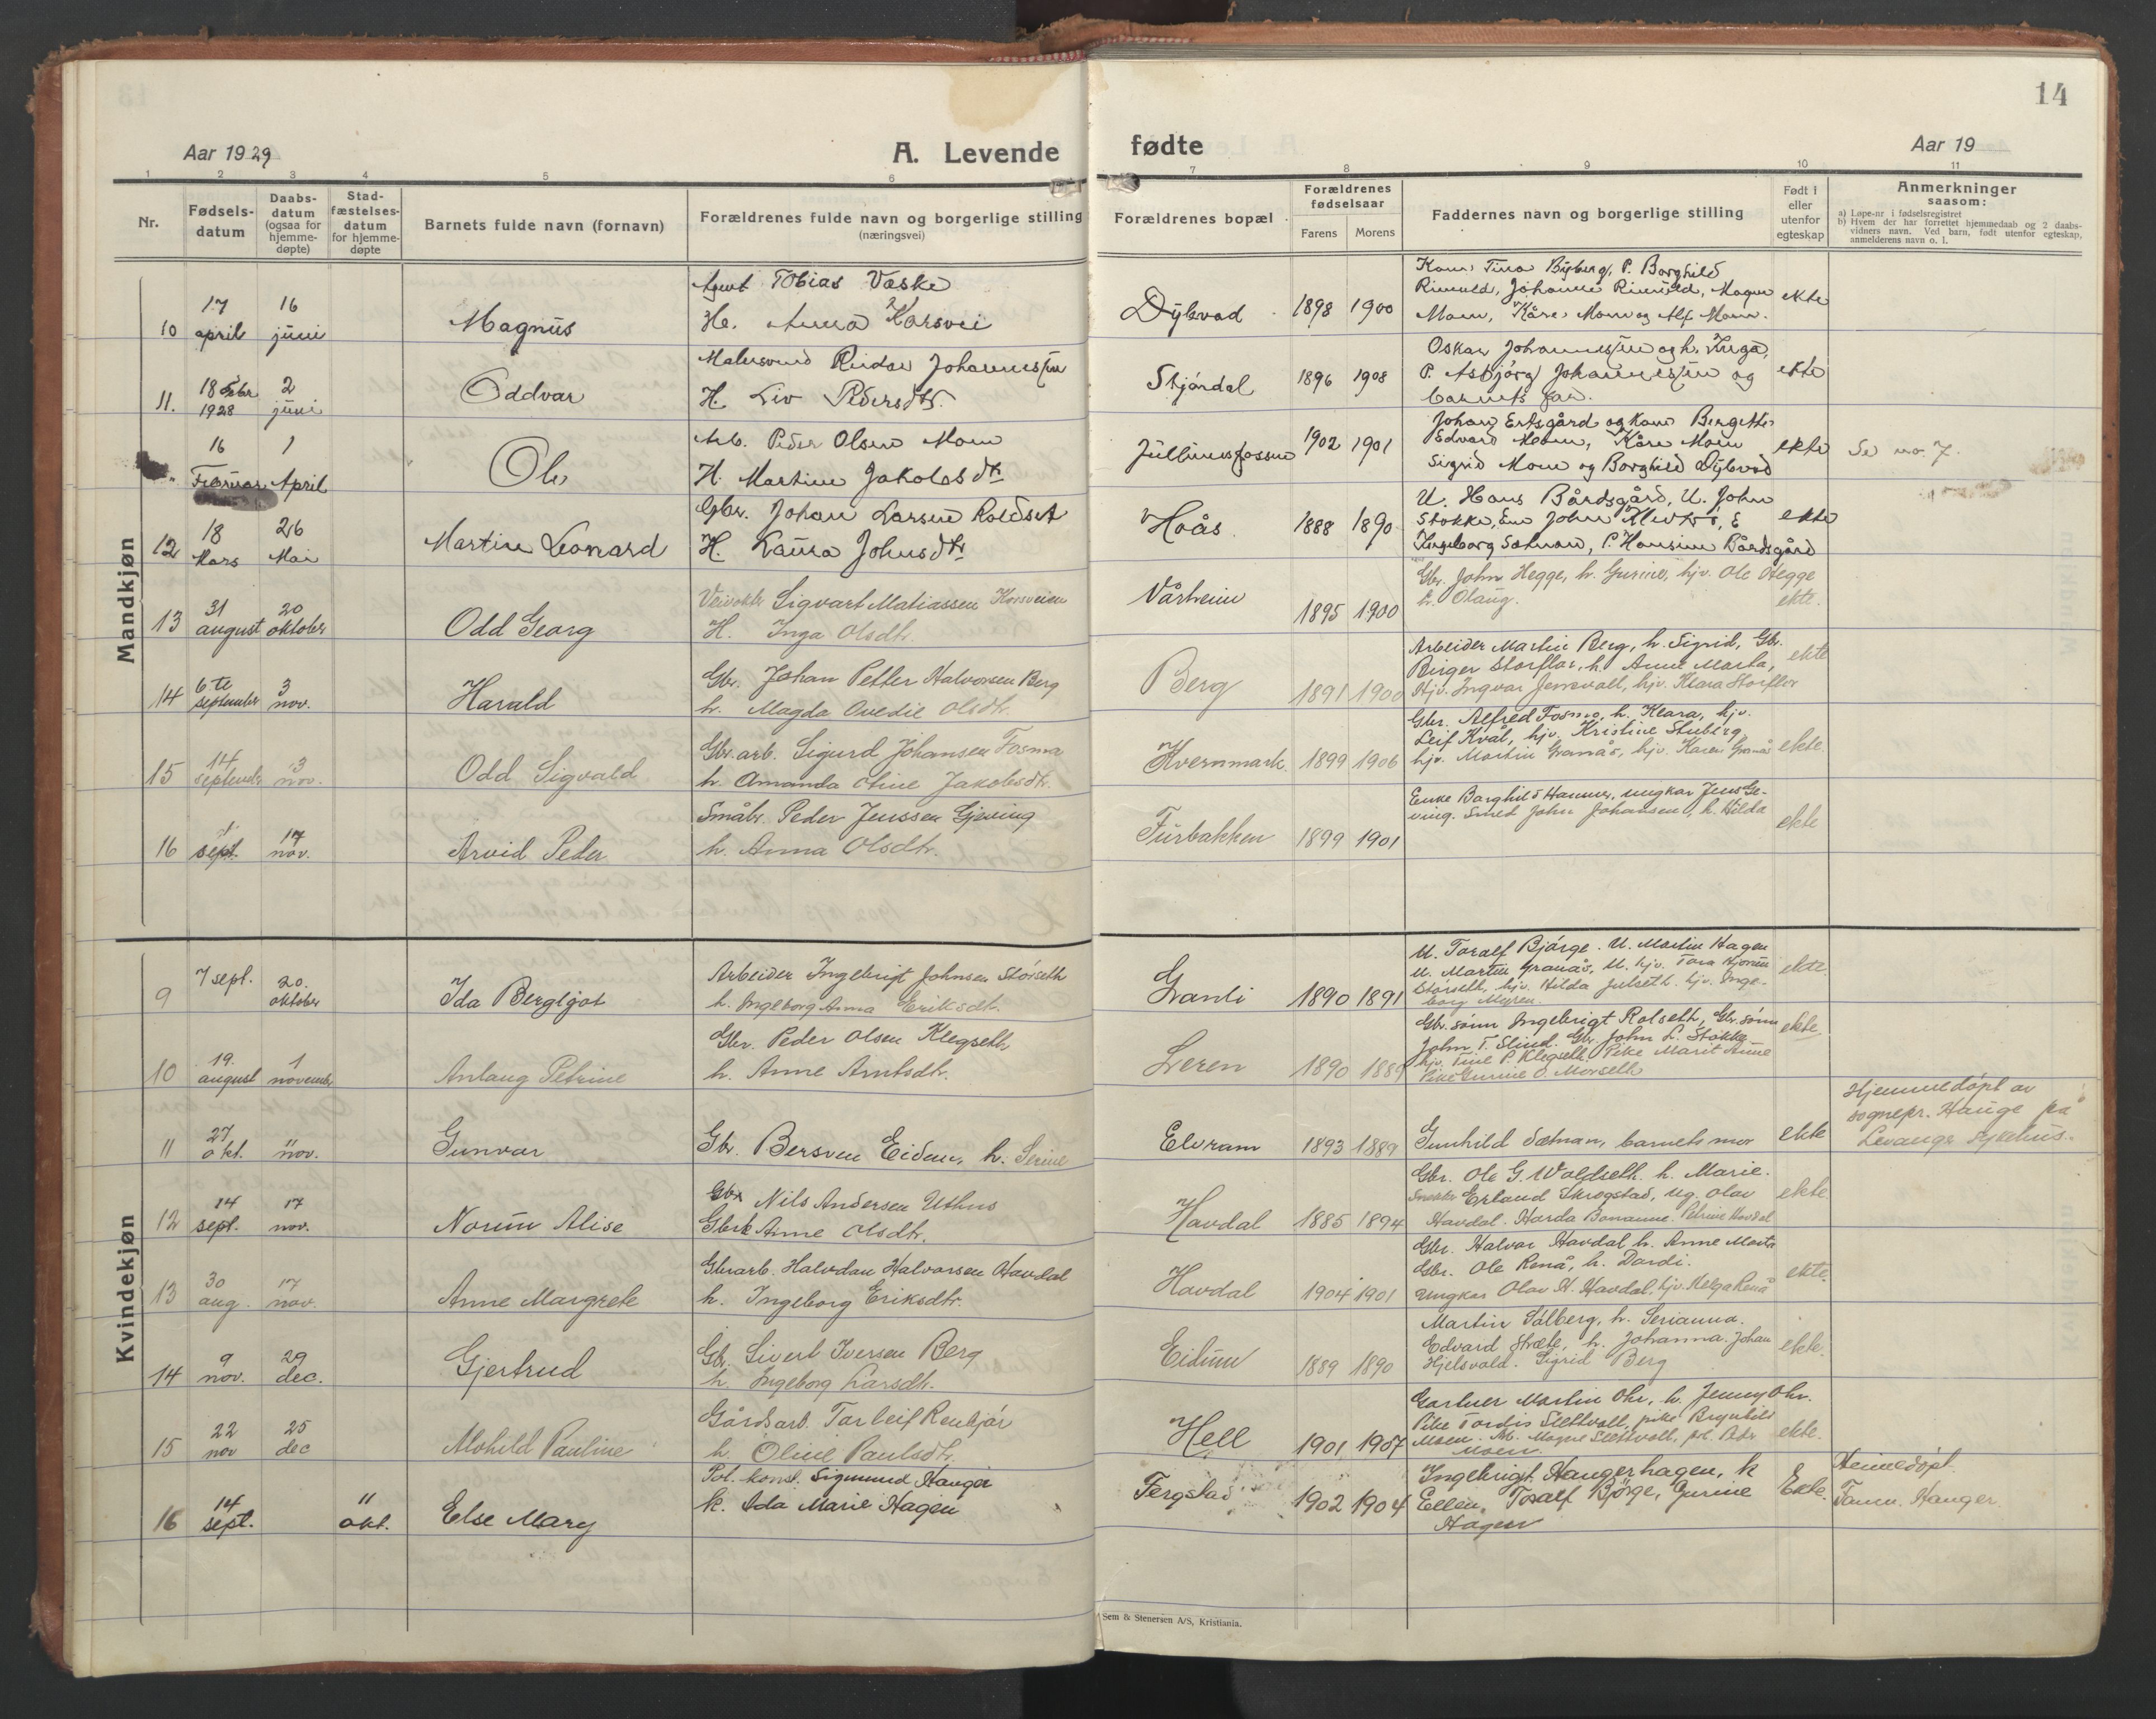 14
Aar 1929
A. Levende
fødte
Aar 19
1 2 3 4 5 6 7 8 9 10 11
Nr.
Fødsels-
datum
Daabs-
datum
(ogsaa for
hjemme-
døpte)
Stad-
fæstelses-
datum
for hjemme-
døpte
Barnets fulde navn (fornavn)
Forældrenes fulde navn og borgerlige stilling
(næringsvei)
Forældrenes bopæl
Forældrenes
fødselsaar
Farens Morens
Faddernes navn og borgerlige stilling
Født i
eller
utenfor
egteskap
Anmerkninger
saasom:
a) Løpe-nr i fødselsregistret
b) Hvem der har forrettet hjemmedaab og 2 daabs-
vidners navn. Ved barn, født utenfor egteskap,
anmelderens navn o. l.
Mandkjøn
10
17
april
16
juni
Magnus
Agent Tobias Vaske
H. Anna Korsvei
Dybvad
1898 1900
P. Borghild
Johanne
Moen, Kåre Moen og Alf Moen.
ekte
11.
18 Febr
1928
2
juni
Oddvar
Reidar Johannessen
H. Liv Pedersdtr.
Stjørdal
1896 1908
Oskar Johannessen og h. Inga,
P. Asbjørg Johannessen og
barnets far.
ekte
"
16
Februar
1
April
Ole
Arb. Peder Olsen Moen
H. Martine Jakobsdtr
1902 1901
Johan Ertsgård og Kone Bergette
Edvard Moen, Kåre Moen
Sigrid Moen og Borghild Dybvad
ekte
Se no. 7.
12
18
Mars
26
Mai
Martin Leonard
Gbr. Johan Larsen
H. Laura Johnsdtr
Hoås
1888 1890
U. Hans Bårdsgård, U. John
Stokke, John
Ingeborg Sætnan, P. Hansine Bårdsgård
ekte
13
31
august
20
oktober
Odd Georg
Sigvart Matiassen Korsveien
H. Inga Olsdtr.
Vårheim
1895 1900
Gbr. John Hegge, h. Gurine, hjv. Ole Hegge
h. Olaug.
ekte.
14
6te
september
3
nov.
Harald
Gbr. Johan Petter Halvorsen Berg
h. Magda Ovedie Olsdtr.
Berg
1891 1900
Arbeider Martin Berg, h. Sigrid, Gbr.
Birger Storflor, h. Anne Marta,
hjv. Ingvar Jenvoll, hjv. Klara Storflor
ekte
15
14
september
3
nov.
Odd Sigvald
Gbr.arb. Sigurd Johansen Fosmo
h. Amanda Oline Jakobsdtr.
Hvernmark.
1899 1906
Gbr. Alfred Fosmo, h. Klara, hjv.
Leif Kvål, hjv. Kristine Stuberg,
hjv. Martin Granås, hjv. Karen Granås
ekte.
16
1
sept.
17
nov.
Arvid Peder
Småbr. Peder Jenssen Gjeving
h. Anna Olsdtr.
Furbakken
1899 1901
Enke Borghild Hammer, ungkar Jens Ge-
ving. Smed John Johansen, h. Hilda
ekte
Kvindekjøn
9
7 sept.
20.
oktober
Ida Bergljot
Arbeider Ingebrigt Johnsen Størseth
h. Ingeborg Anna Eriksdtr.
Granli
1890 1891
U. Toralf Bjørge. U. Martin Hagen
U. Martin Granås, U. hjv. Tora
Størseth, hjv. Hilda Julseth. hjv. Inge-
borg Myren.
ekte.
10
19.
august
1
november
Anlaug Petrine
Gbr. Peder Olsen Klegseth
h. Anne Arntsdtr.
Leren
1890 1889
Gbr. sønn Ingebrigt Rolseth, Gbr. sønn
John T. Slind. Gbr. John L. Stokke
hjv. Tine P. Klegseth. Pike Marit Anne
Pike Gurine O. Morseth
ekte.
11
27
okt.
"
nov.
Gunvor
Gbr. Bersven Eidum, h. Serine
Elvram
1893 1889
Gunhild Sætnan, barnets mor
ekte
Hjemmedøpt av
sognepr. Hauge på
Levanger sykehus.
12
14
sept.
17
nov.
Norun Alise
Gbr Nils Andersen Uthus
Gbrk Anne Olsdtr.
Havdal
1885 1894
Gbr. Ole G. Woldseth. h. Marie.
Snekker Erland Skrogstad, ug. Olav
Havdal. Harda Petrine Havdal
ekte.
13
30
aug.
17
nov.
Anne Margrete
Gbr.arb. Halvdan Halvorsen Havdal
h. Ingeborg Eriksdtr.
Havdal
1904 1901
Gbr. Halvar Havdal h. Anne Marta
Gbr. Ole Renå, h. Dordi.
Ungkar Olav H. Havdal, hjv. Helga Renå
ekte.
14
9
nov.
29
dec.
Gjertrud
Gbr. Sivert Iversen Berg
h. Ingeborg Larsdtr.
Eidum
1889 1890
Martin Sølberg, h. Serianna.
Edvard Stræte, h. Johanna. Johan
Hjelsvold. Sigrid Berg
ekte.
15
22
nov
25
dec
Alohild Pauline
Gårdsarb. Torleif Renbjør
h. Oline Paulsdtr.
Hell
1901 1907
Gartner Martin Ohr, h. Jenny Ohr.
Pike Tordis Slettvoll, pike Brynhild
Moen. Arb. Magne Slettvoll, Peder
Moen.
ekte.
16
14
sept.
11
okt.
Else Mary
Pol. konst. Sigmund Hauger
k. Ida Marie Hagen
Tergstad
1902 1904
Ingebrigt Haugerhagen, k
Ellen, Toralf Bjørge, Gurine
Hagen
Ekte.
Heimedøpt.
Hauger.
Sem & Stenersen A/S, Kristiania.